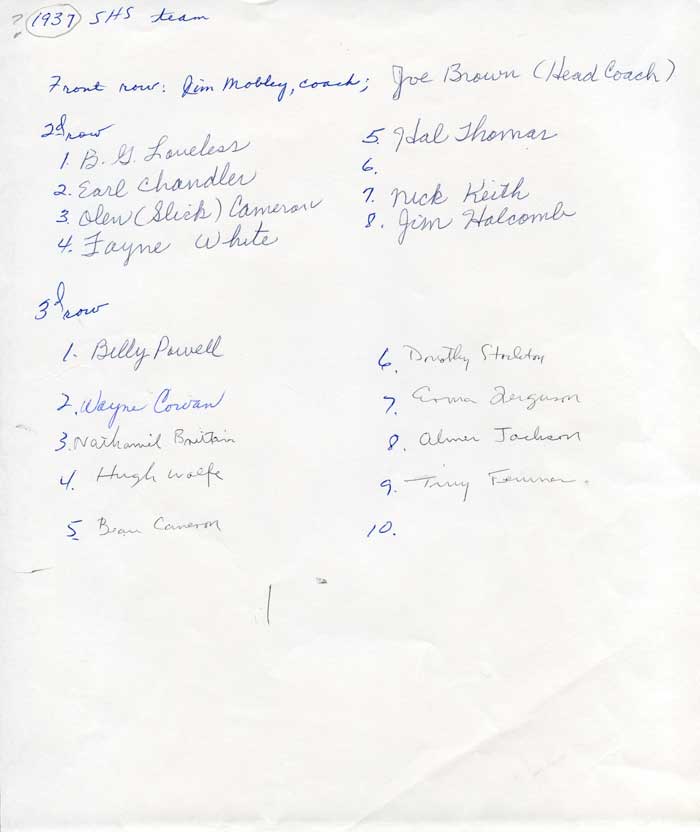 ? 1937 SHS team
Front row: Jim Mobley, coach; Joe Brown (Head Coach)
2d row
1. B. G. Loveless
2. Earl Chandler
3. Olen (Slick) Cameron
4. Fayne White
5. Hal Thomas
6.
7. Nick Keith
8. Jim Halcomb
3d row
1. Billy Powell
2. Wayne Cowan
3. Nathaniel Brittain
4. Hugh Wolfe
5 Beau Cameron
6. Dorothy Stockton
7. Erma Ferguson
8. Almer Jackson
9. Tiny
10.